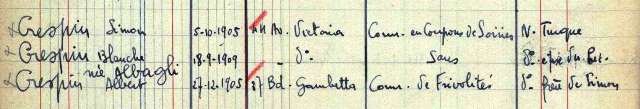 Crespin Simon 5-10-1905 44 Av. Victoria Com. en Coupons de Soieries N- Turque
Crespin Blanche 18-9-1909 - d° Sans d° épse du Préc.
née Albagli
Crespin Albert 27-12-1905 27 Bd. Gambetta Com. de Frivolités d° frère de Simon